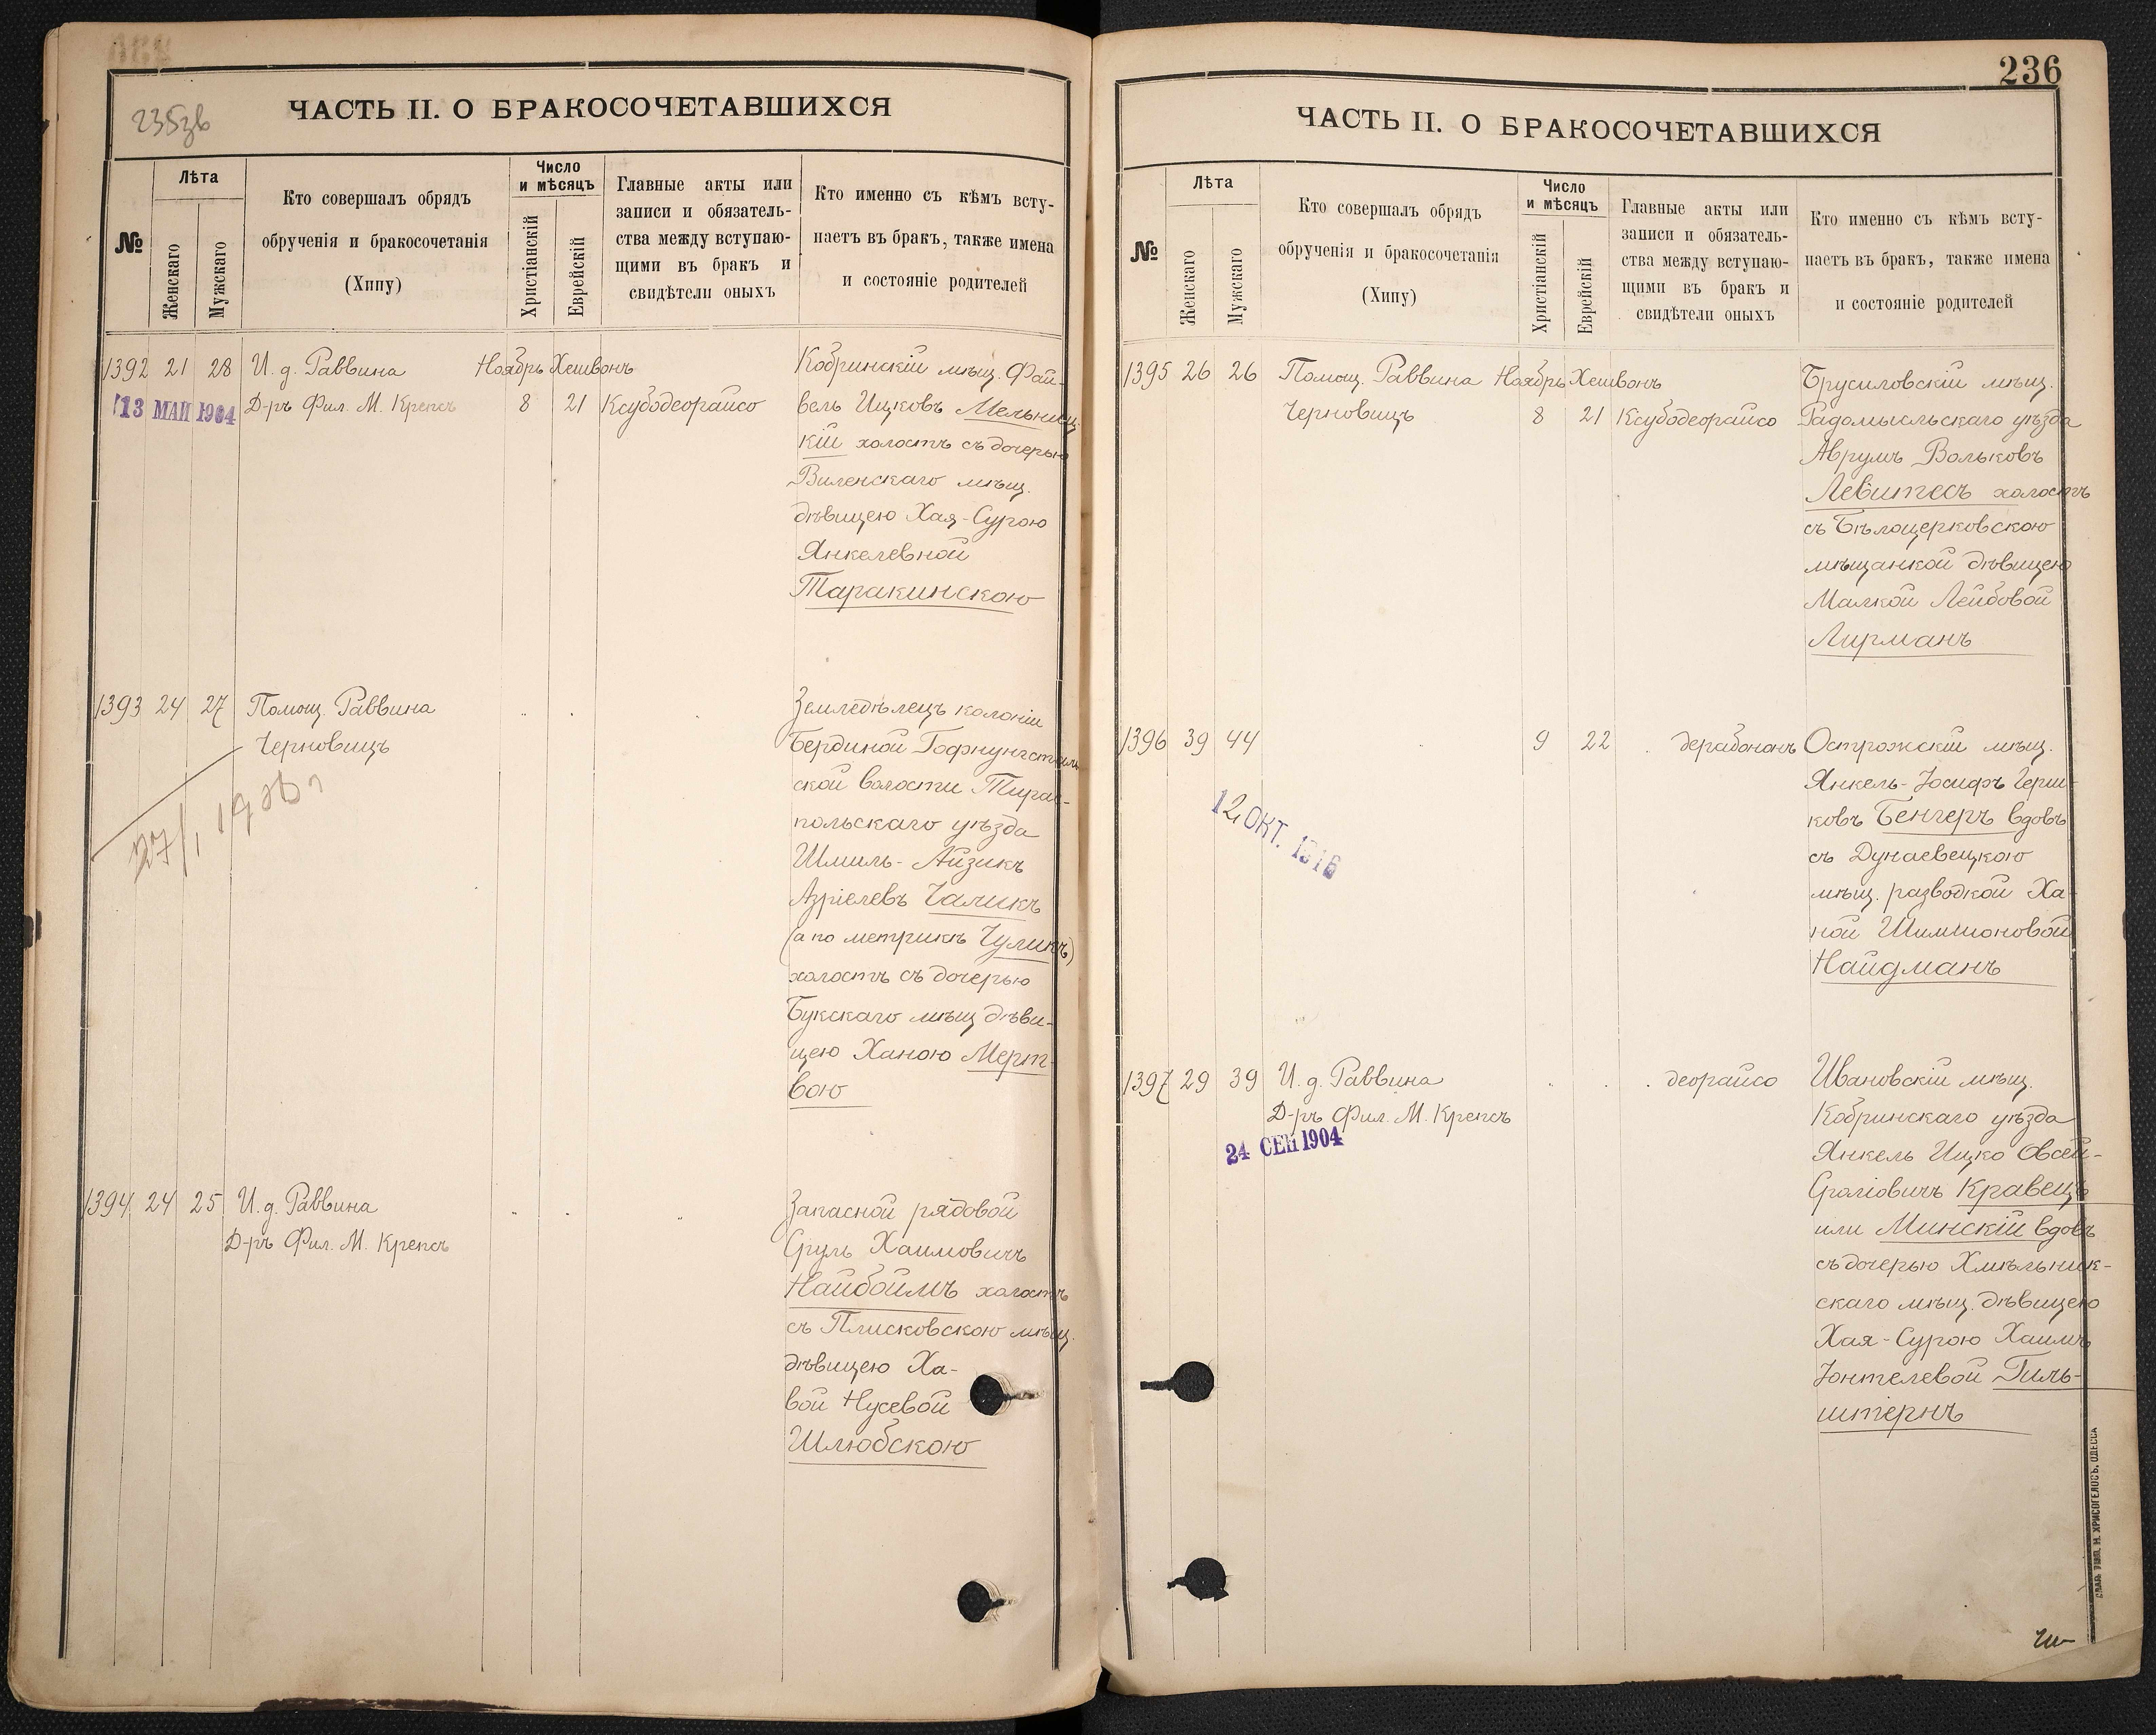 235зв
ЧАСТЬ II. О БРАКОСОЧЕТАВШИХСЯ
№
Лѣта
Женскаго
Мужскаго
Кто совершалъ обрядъ
обрученія и бракосочетанія
(Хипу)
Число
и мѣсяцъ
Христіанскій
Еврейскій
Главные акты или
записи и обязатель-
ства между вступаю-
щими въ бракъ и
свидѣтели оныхъ
Кто именно съ кѣмъ всту-
паетъ въ бракъ, также имена
и состояніе родителей
1392 21 28 И. д. Раввина Ноябрь Хешвонъ Кобринскій мѣщ. Фай-
13 МАЙ 1904 Д-ръ Фил. М. Крепсъ 8 21 Ксубодеорайсо вель Ицковъ Мельниц-
кій холостъ съ дочерью
Виленскаго мѣщ.
дѣвицею Хая-Сурою
Янкелевной
Таракинскою
1393 24 27 Помощ. Раввина Земледѣлецъ колоніи
Черновицъ
ской волости Тирас-
польскаго уѣзда
Шмиль-Айзикъ
Азріелевъ Чаликъ
(а по метрикѣ Чуликъ)
холостъ съ дочерью
Букскаго мѣщ дѣви-
цею Ханою Мерт-
вою
1394 24 25 И. д. Раввина Запасной рядовой
Д-ръ Фил. М. Крепсъ Сруль Хаимовичъ
Найбоймъ холостъ
съ Плисковскою мѣщ.
дѣвицею Ха-
вой Нусевой
Шлюбскою
236
ЧАСТЬ II. О БРАКОСОЧЕТАВШИХСЯ
№
Лѣта
Женскаго
Мужскаго
Кто совершалъ обрядъ
обрученія и бракосочетанія
(Хипу)
Число
и мѣсяцъ
Христіанскій
Еврейскій
Главные акты или
записи и обязатель-
ства между вступаю-
щими въ бракъ и
свидѣтели оныхъ
Кто именно съ кѣмъ всту-
паетъ въ бракъ, также имена
и состояніе родителей
1395 26 26 Помощ. Раввина Ноябрь Хешвонъ Брусиловскій мѣщ.
Черновицъ 8 21 Ксубодеорайсо Радомысльскаго уѣзда
Аврумъ Вольковъ
Левитесъ холостъ
съ Бѣлоцерковскою
мѣщанкой дѣвицею
Малкой Лейбовой
Лирманъ
1396 39 44 9 22 дерабононъ Острожскій мѣщ.
Янкель-Іосифъ Герш-
12 ОКТ. 1916 ковъ Бенгеръ вдовъ
съ Дунаевецкою
мѣщ. разводкой Ха-
ной Шимшоновой
Найдманъ
1397 29 39 И. д. Раввина деорайсо Ивановскій мѣщ.
Д-ръ Фил. М. Крепсъ Кобринскаго уѣзда
24 СЕН 1904 Янкель Ицко Овсей-
Сроліовичъ Кравецъ
или Минскій вдовъ
съ дочерью Хмѣльник-
скаго мѣщ. дѣвицею
Хая-Сурою Хаимъ
Іонтелевой Гиль-
штернъ